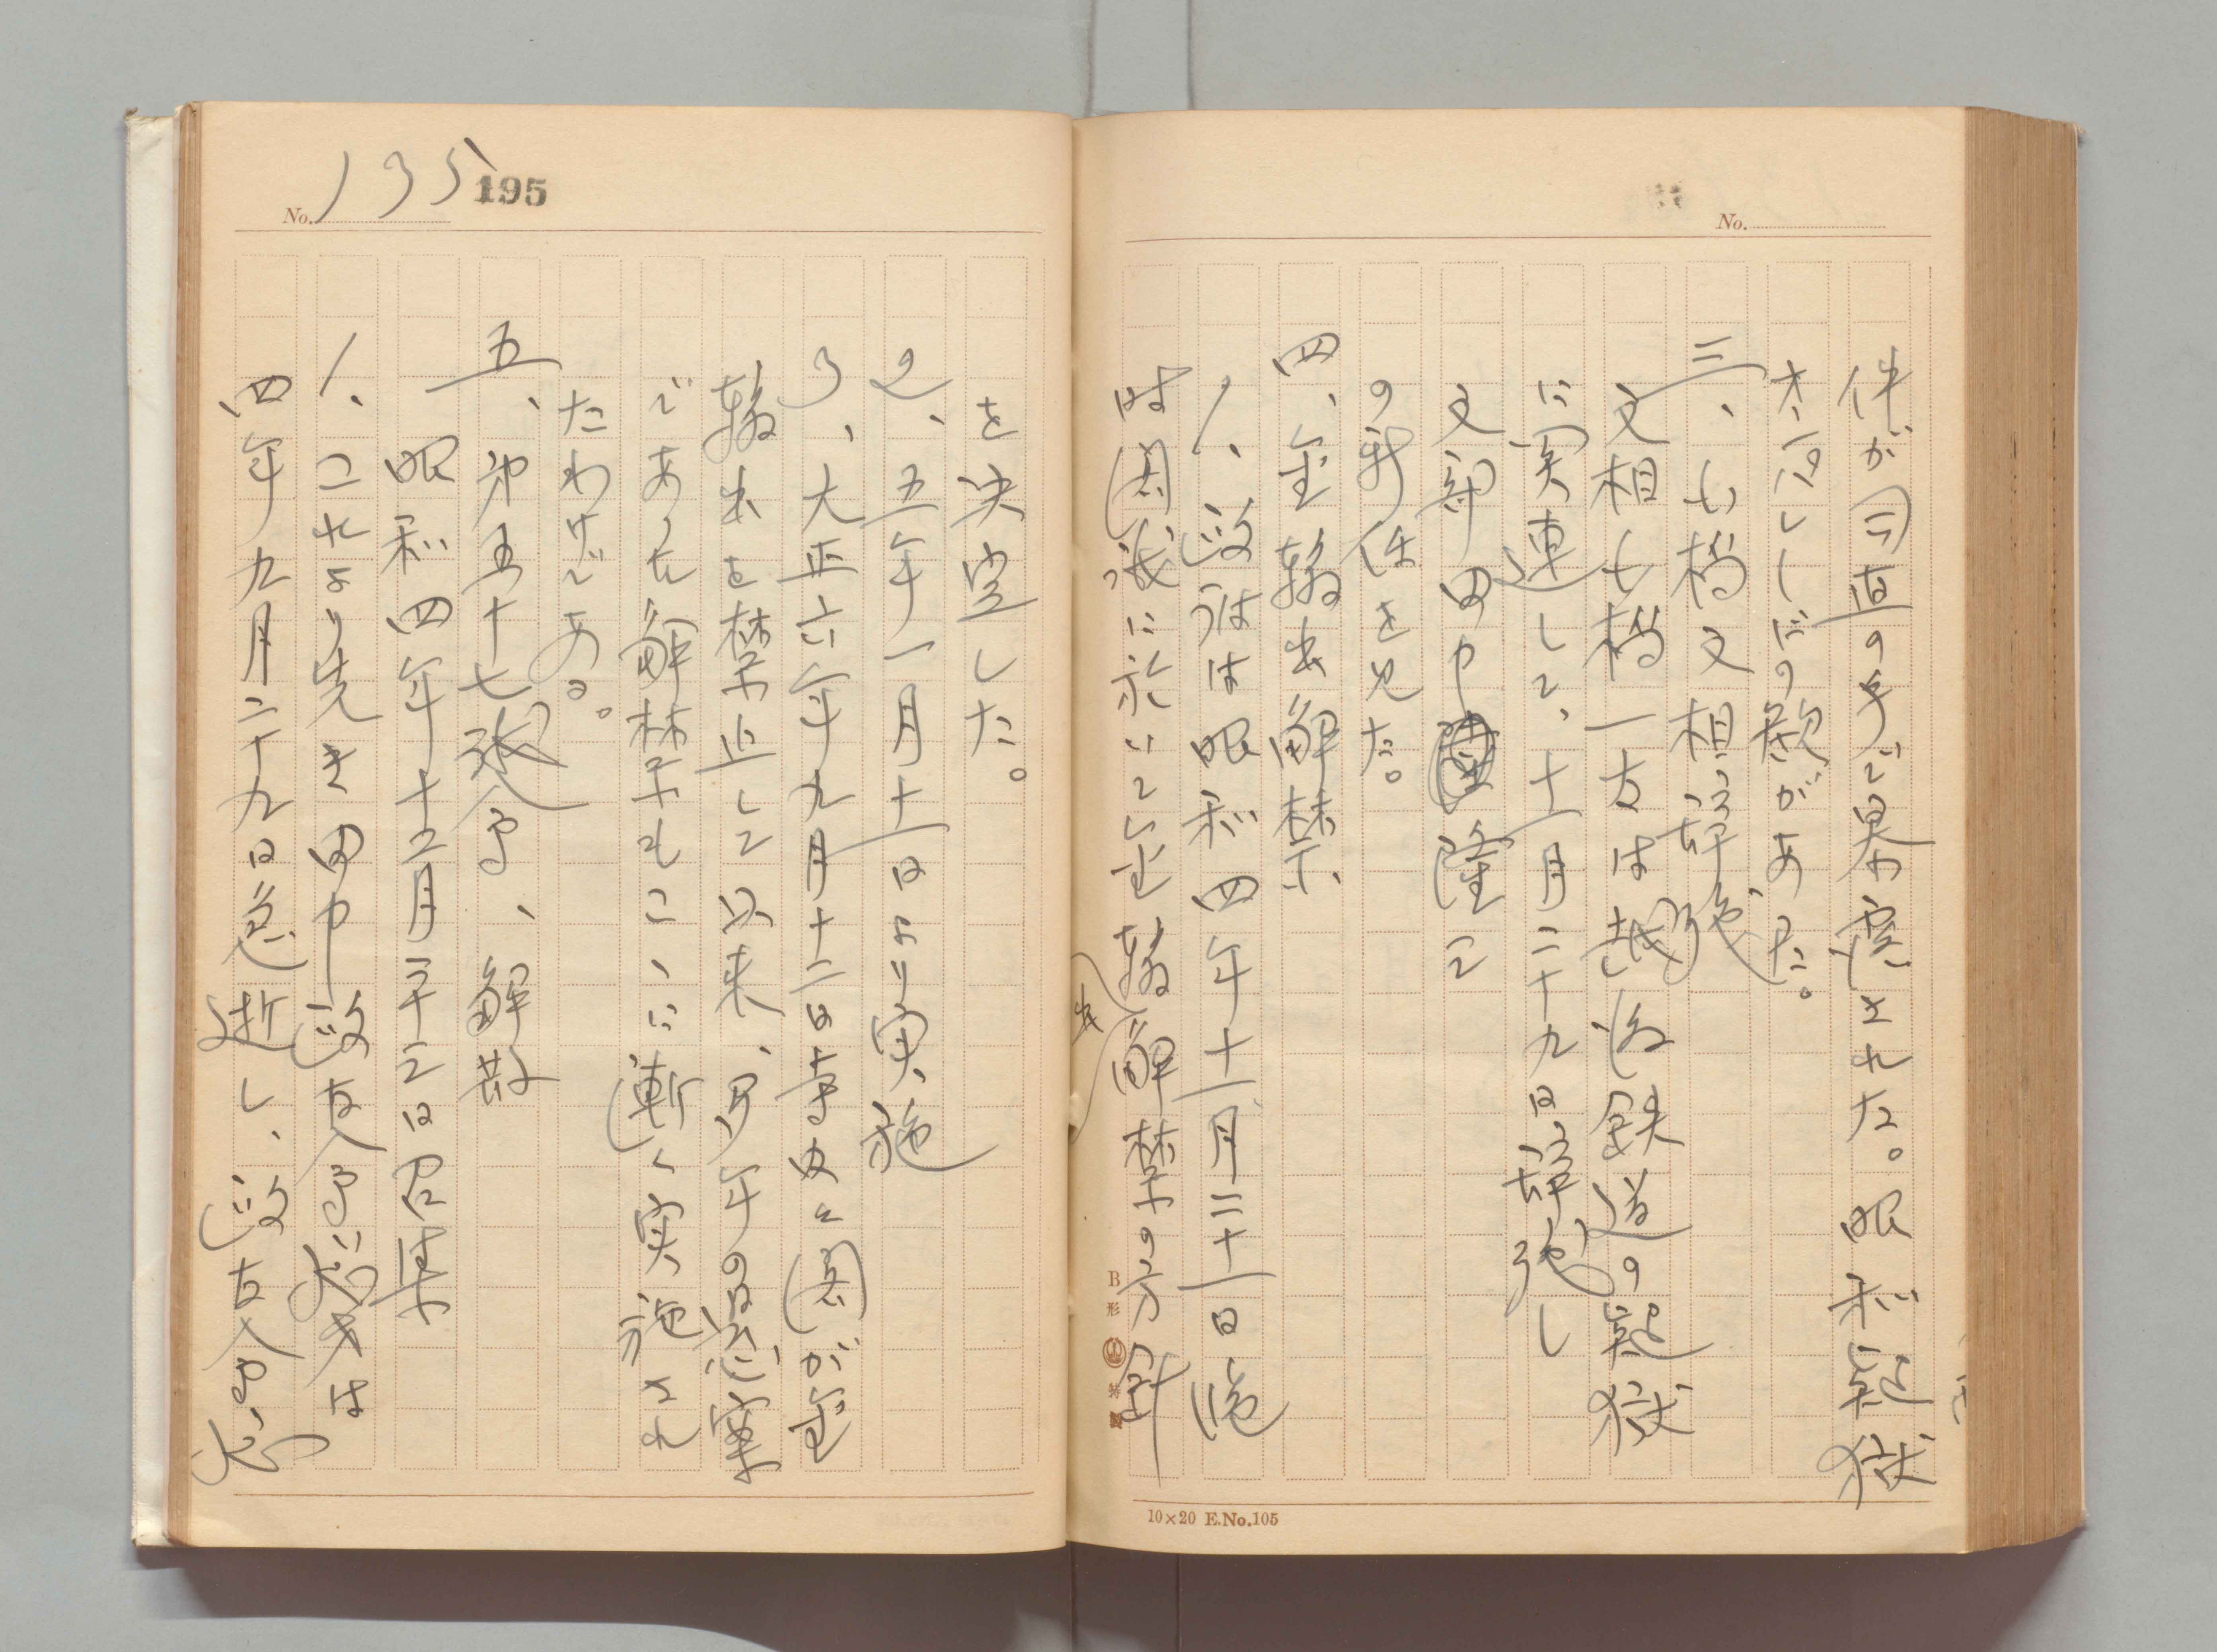 No.
件が司直の手で暴露された。昭和疑獄
オンパレードの観があった。
三、小橋文相辞職
文相小橋一太は越後鉄道の疑獄
に関連して、十一月二十九日辞職し
文部田中隆三
の新任を見た。
四、金輸出解禁、
1、政府は昭和四年十一月二十一日臨
時閣議に於いて金輸出解禁の方針
B形 特
10×20 E.No.105
No. 135 195
を決定した。
2、五年一月十一日より実施
3、大正六年九月十二日寺内々閣が金
輸出を禁止して以来、多年の懸案
であった解禁もこゝに漸く実施され
たわけである。
五、第五十七議会、解散
昭和四年十二月二十三日召集
1、これより先き田中政友会総裁は
四年九月二十九日急逝し、政友会総